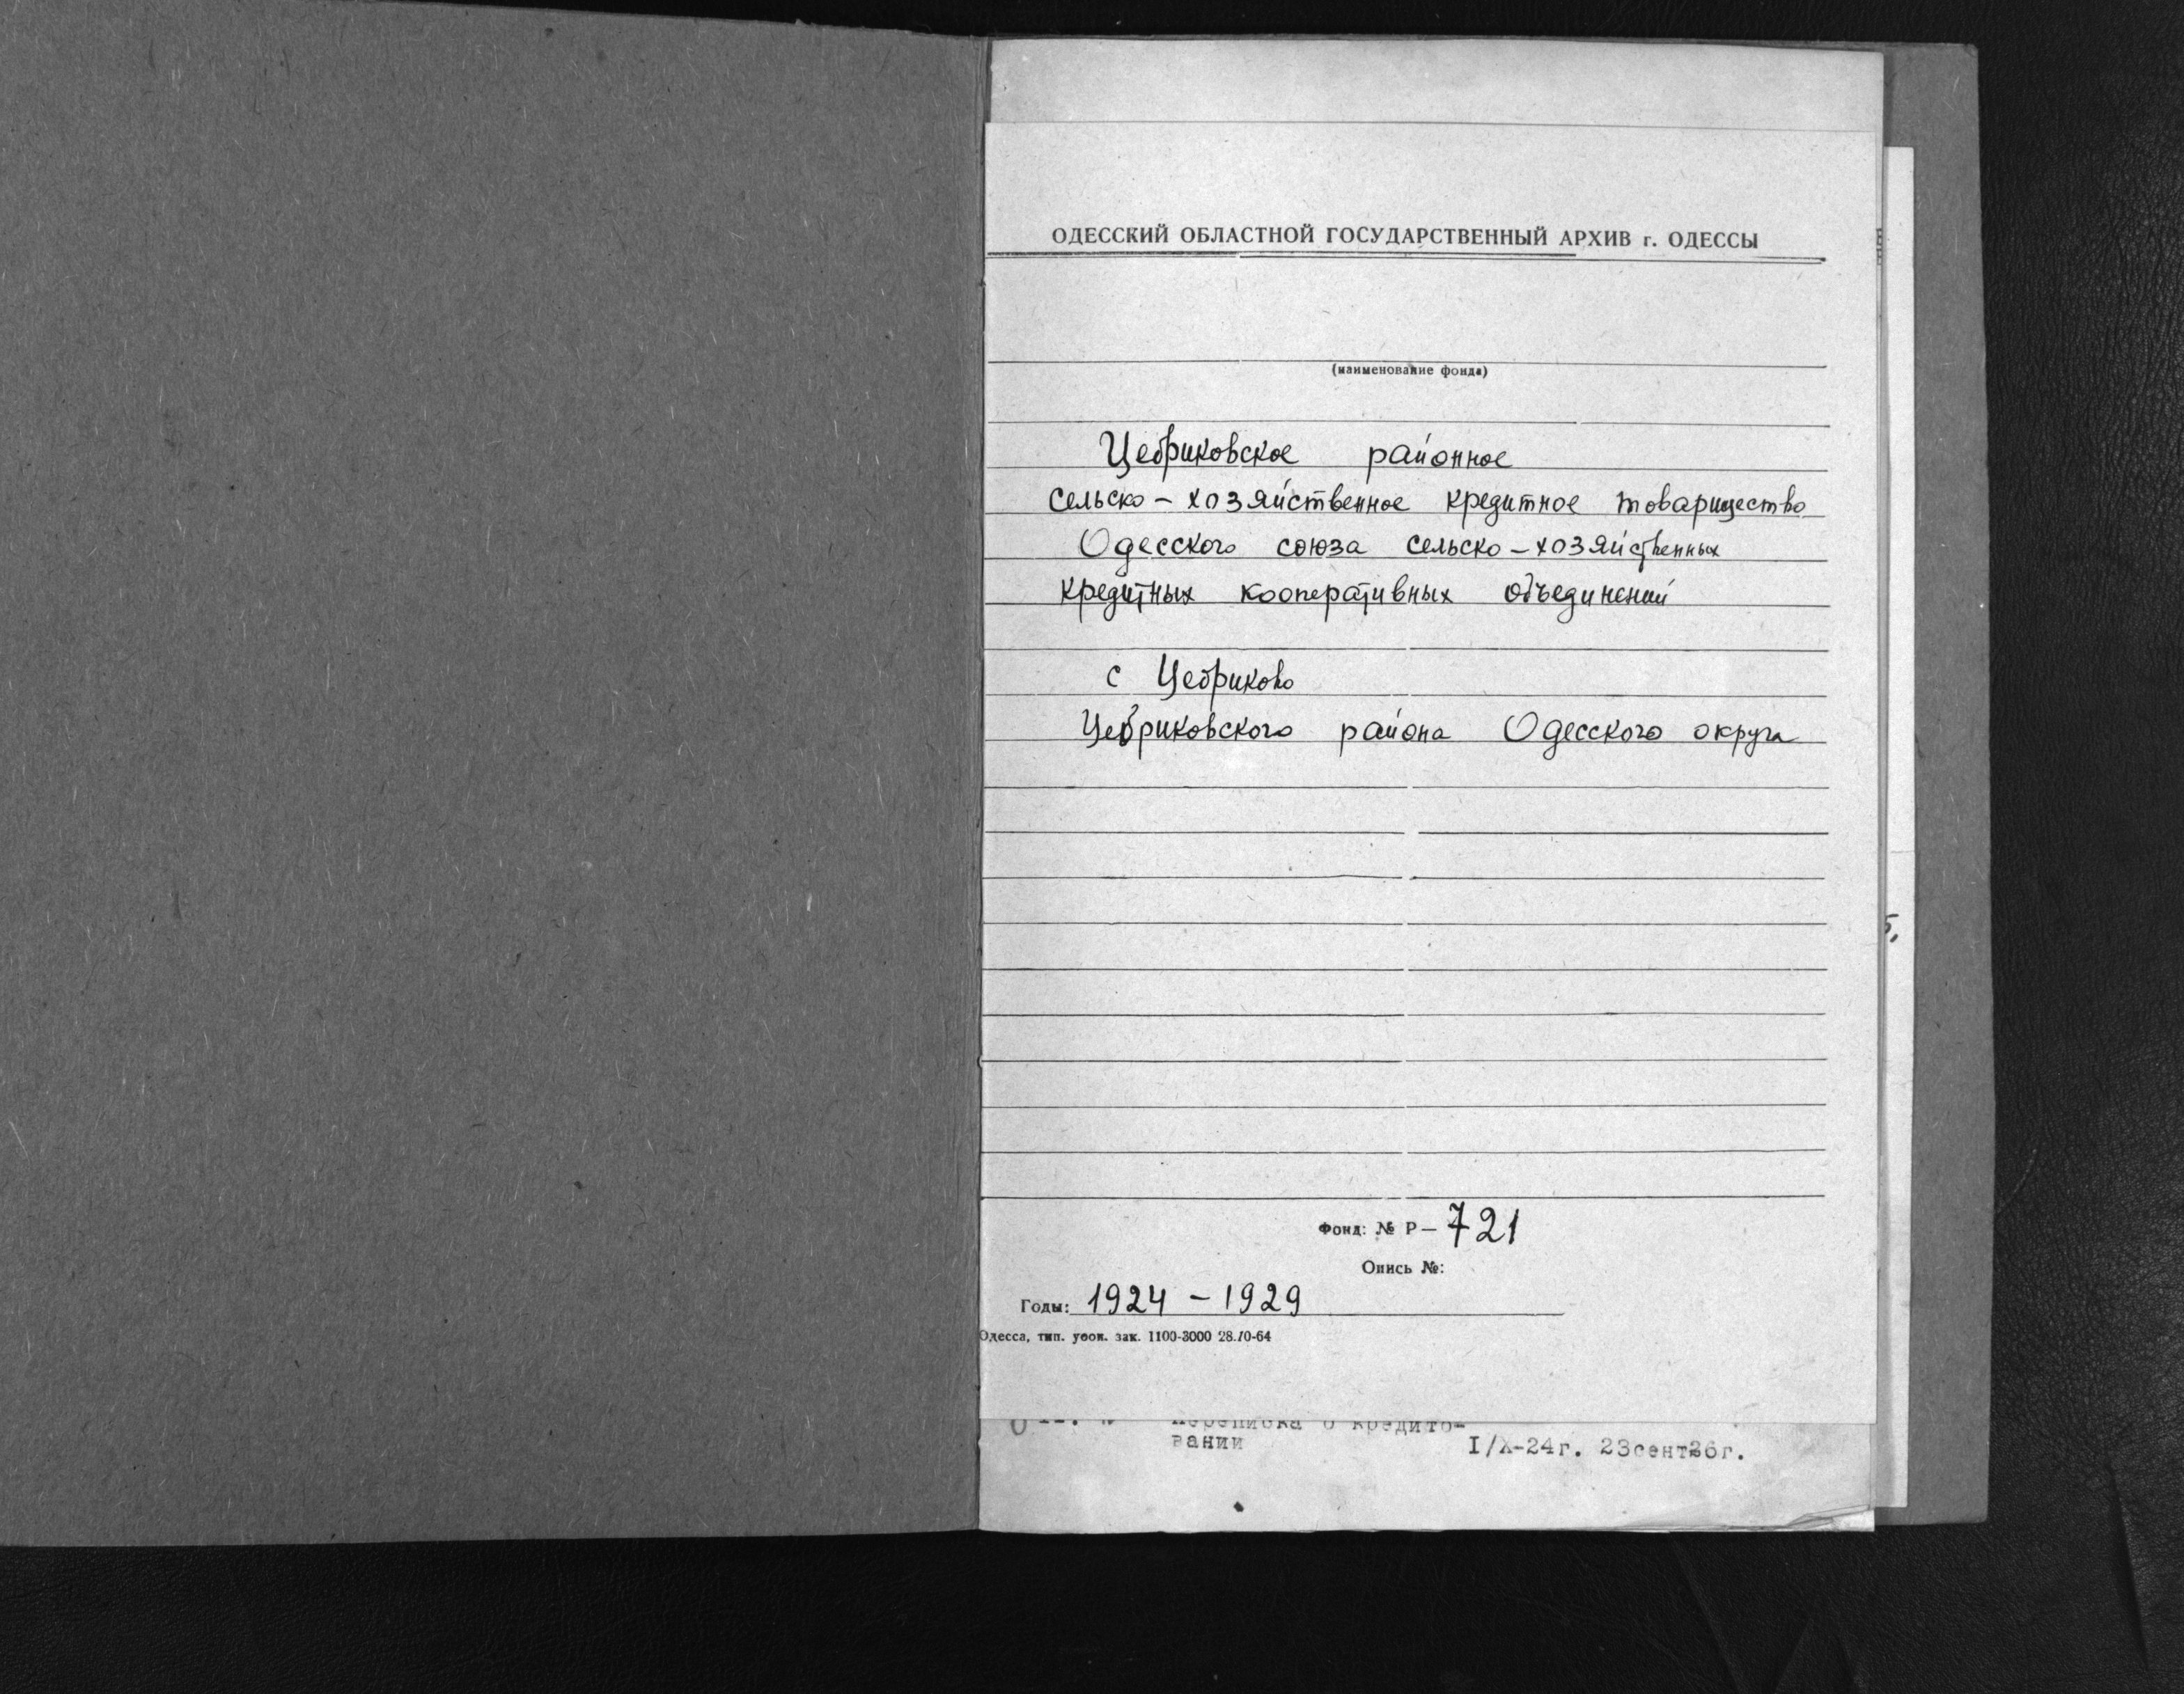 ОДЕССКИЙ ОБЛАСТНОЙ ГОСУДАРСТВЕННЫЙ АРХИВ г. ОДЕССЫ
(наименование фонда)
Цебриковское районное
сельско-хозяйственное кредитное товарищество
Одесского союза сельско-хозяйственных
кредитных кооперативных объединений
с Цебриково
Цебриковского района Одесского округа
5,
Фонд: № Р-721
Опись №:
Годы: 1924 - 1929
Одесса, тип. зак. 1100-3000 28.10-64
Переписка о кредито-
вании I/X-24г. 23сент26г.